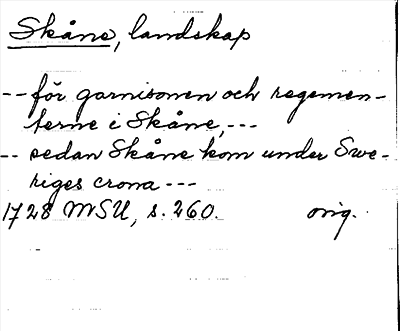 Skåne, landskap
-- för garnisonen och regemen-
terne i Skåne, ---
-- sedan Skåne kom under Swe-
riges crona ---
1728 MSU, s. 260. orig.